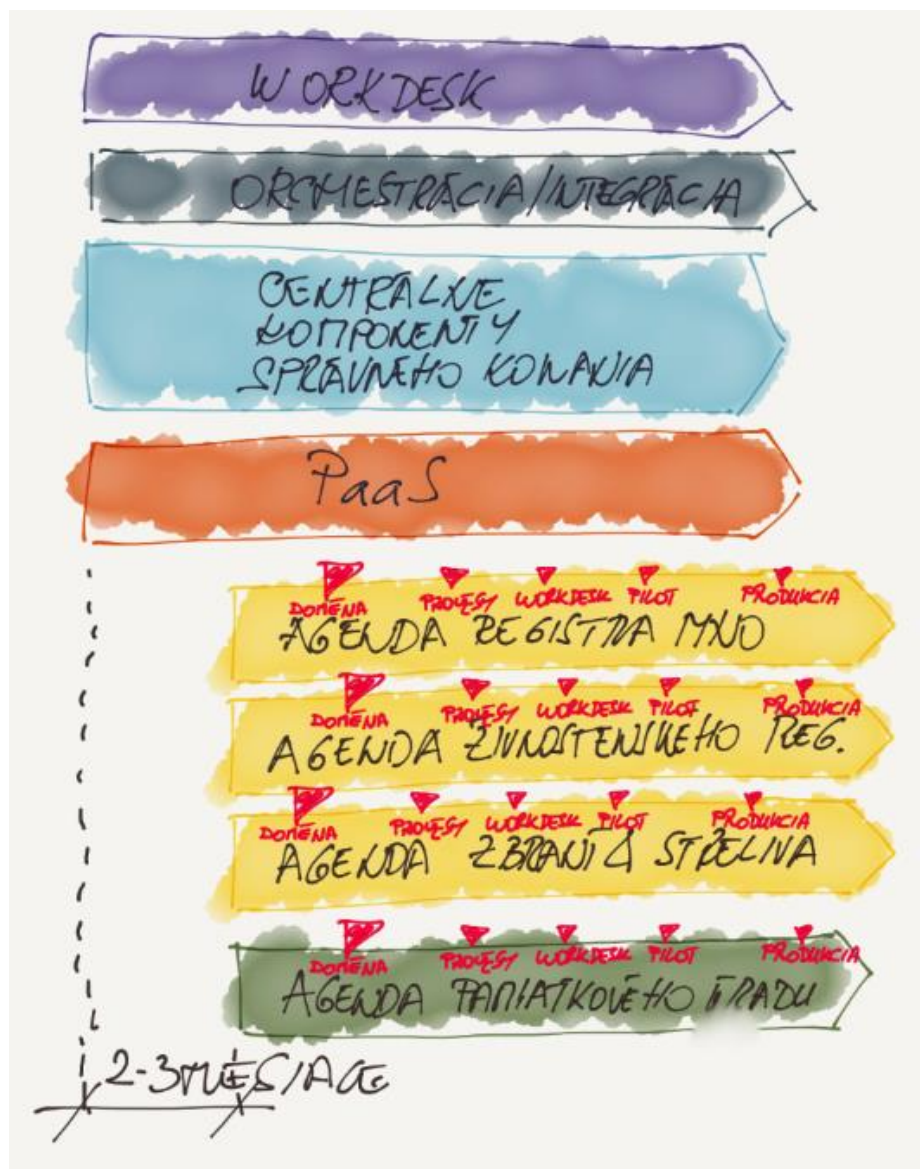 WORKDESK
ORCHESTRÁCIA/INTEGRÁCIA
CENTRÁLNE
KOMPONENTY
SPRÁVNEHO KONANIA
PaaS
DOMÉNA PROCESY WORKDESK PILOT PRODUKCIA
AGENDA REGISTRA MNO
DOMÉNA PROCESY WORKDESK PILOT PRODUKCIA
AGENDA ŽIVNOSTENSKÉHO REG.
DOMÉNA PROCESY WORKDESK PILOT PRODUKCIA
AGENDA ZBRANÍ A STRELIVA
DOMÉNA PROCESY WORKDESK PILOT PRODUKCIA
AGENDA PAMIATKOVÉHO ÚRADU
2-3 MESIACE